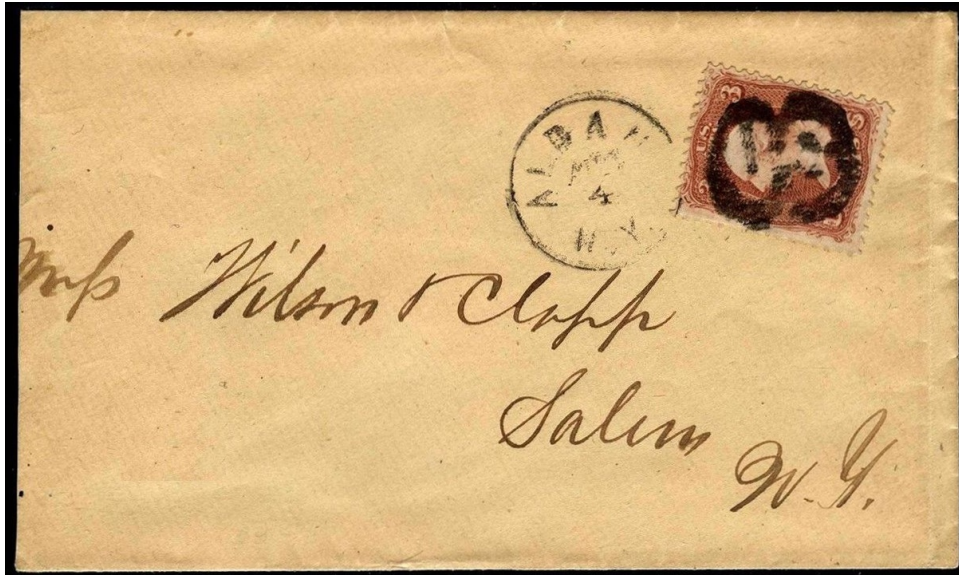 ALBANY
4
N.Y.
U.S.
3
Mess Wilson & Clapp
Salem
N. Y.